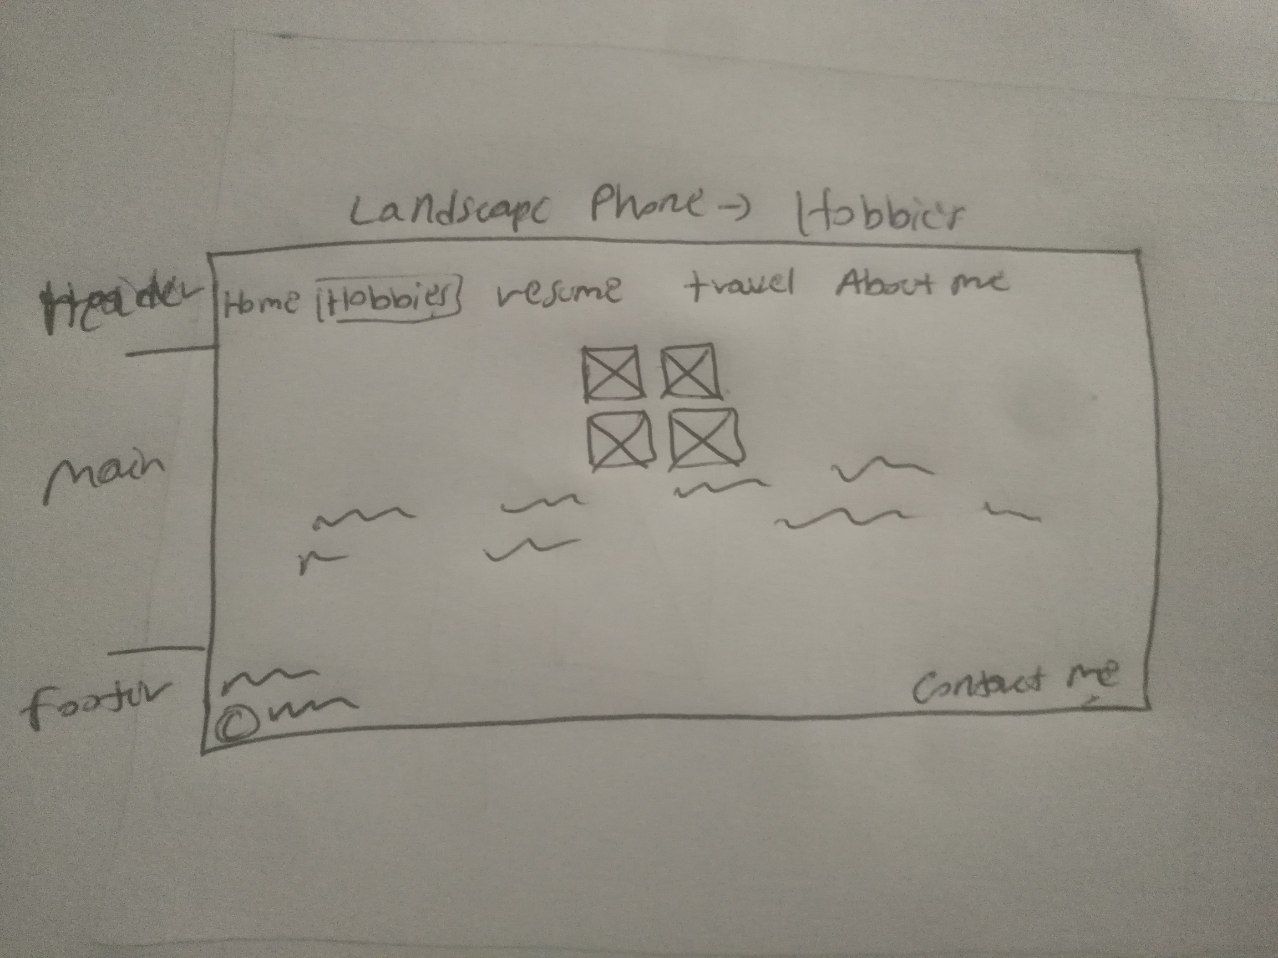 Landscape Phone → Hobbies
Header
Home Hobbies resume travel About me
Main
footer
Contact me
©